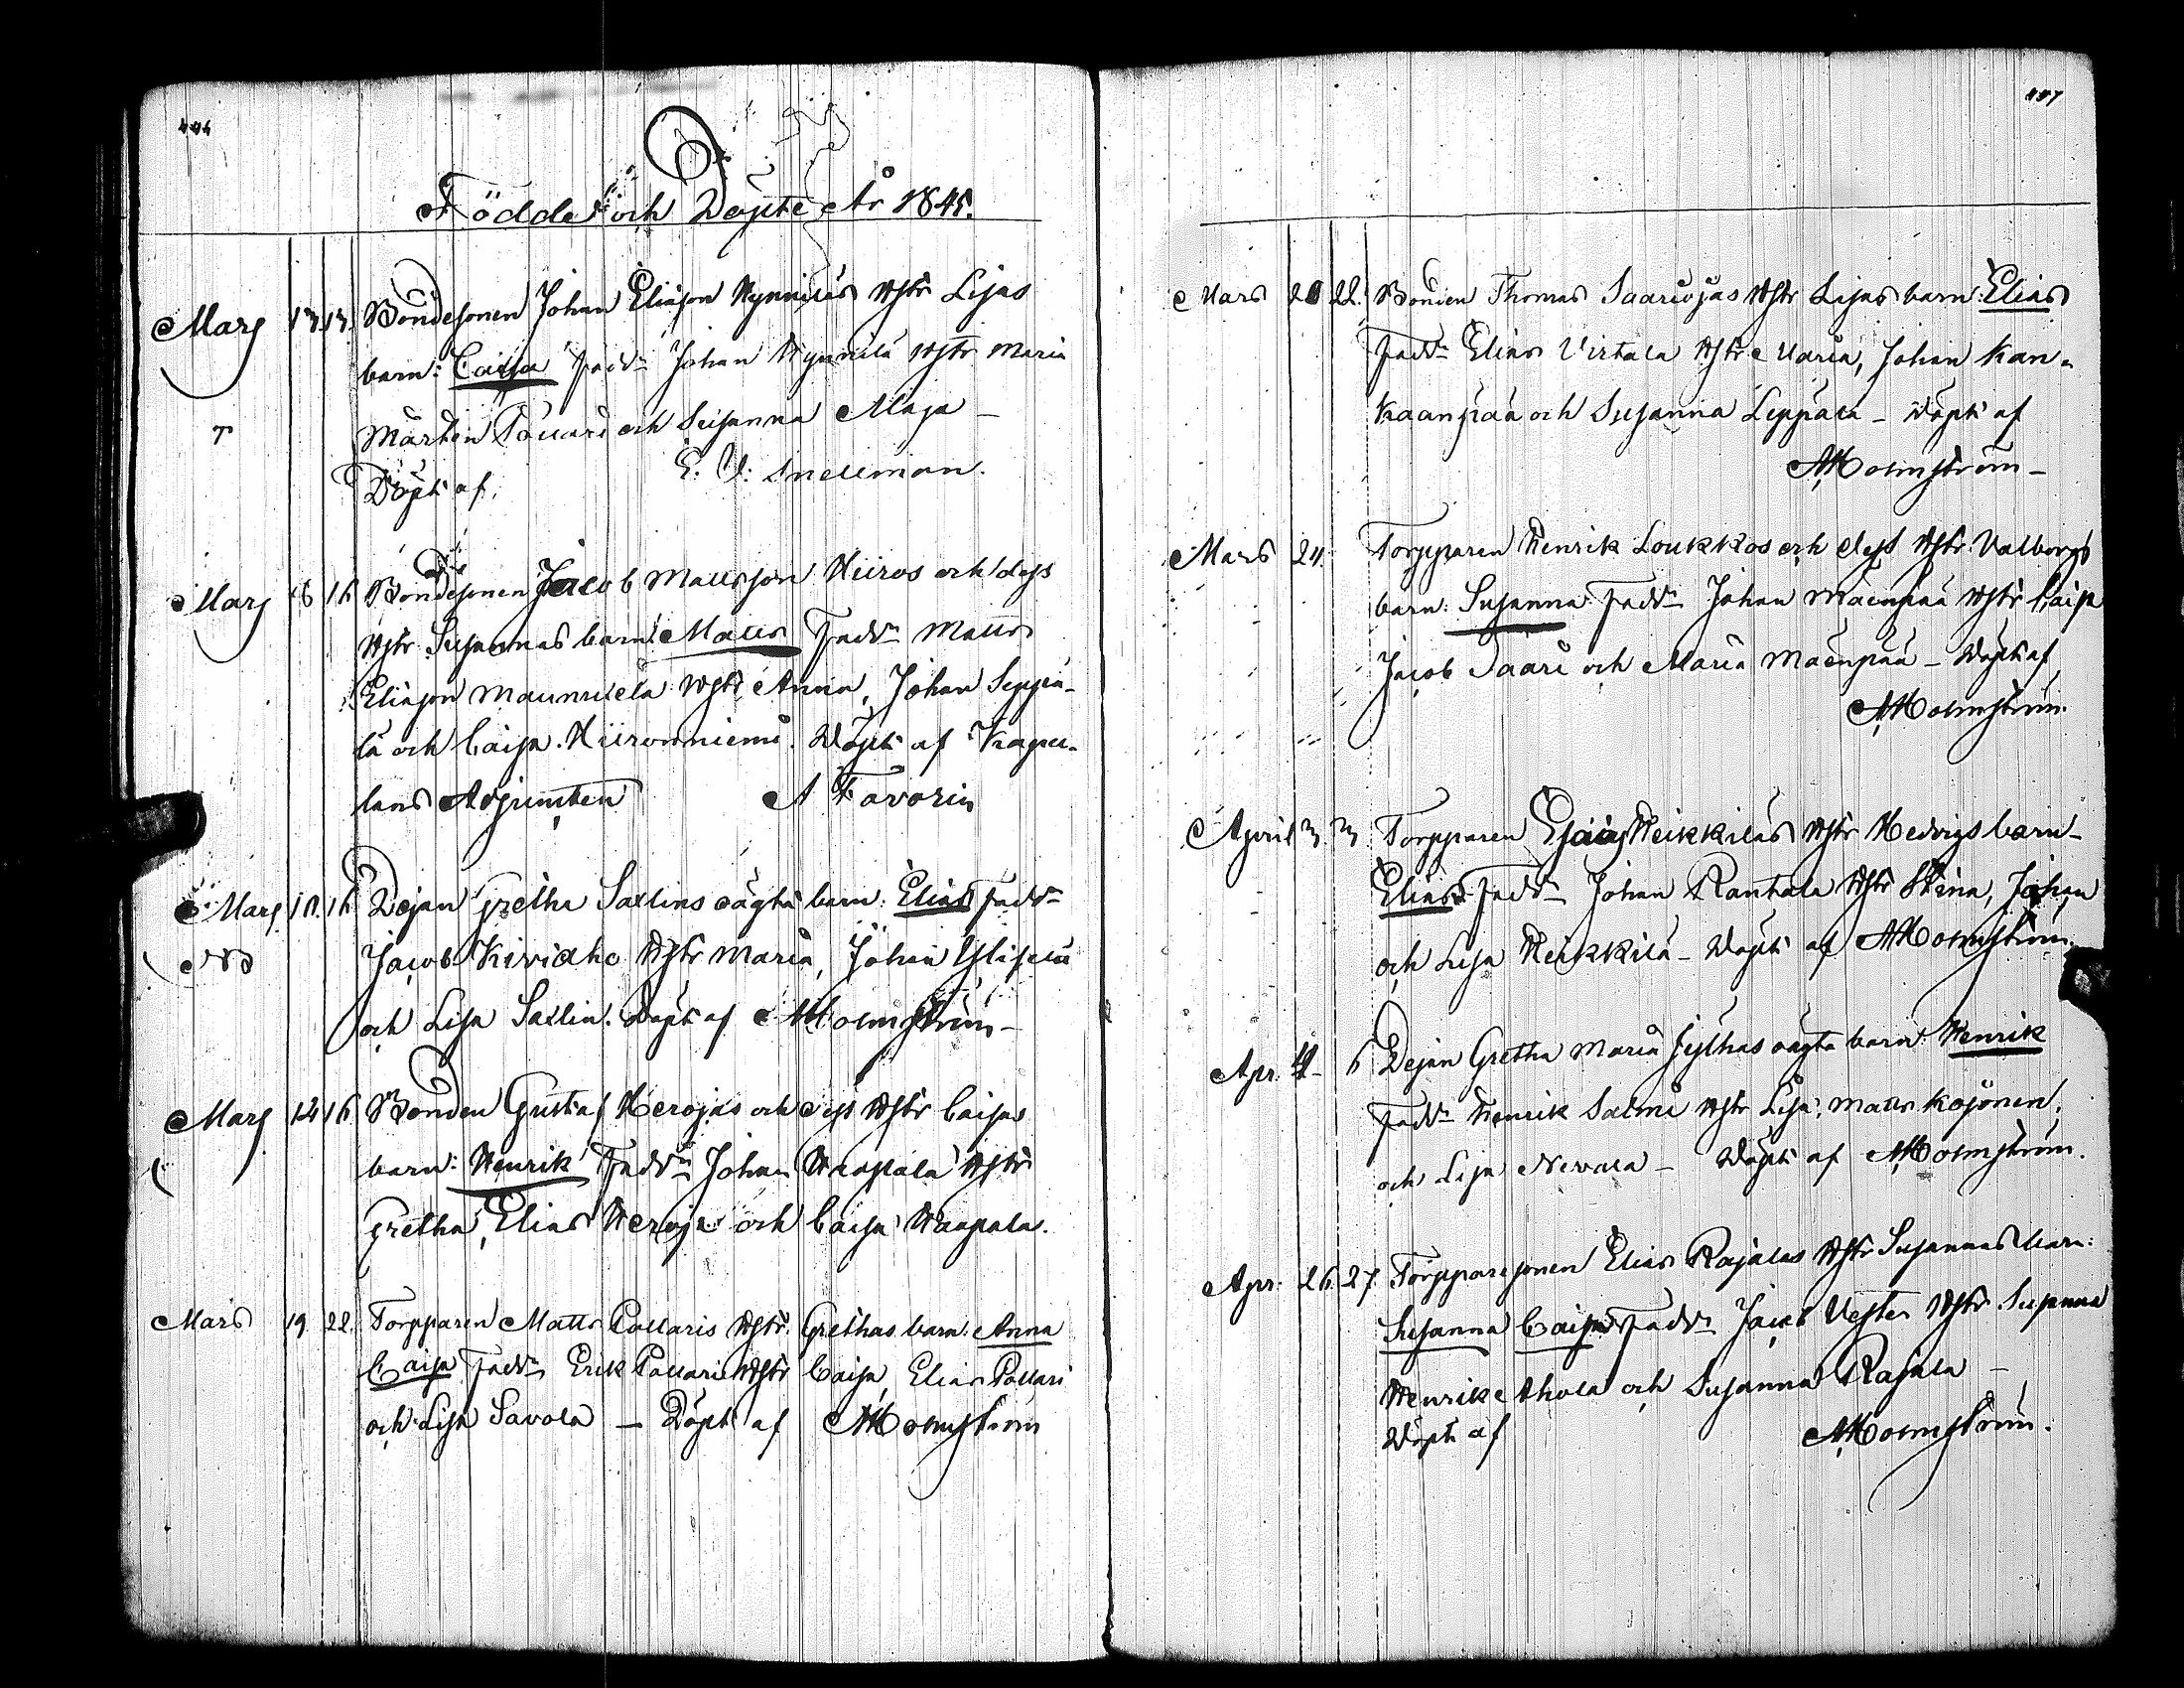 Födde och Döpte År 1845.
Mars 13 13. Bondesonen Johan Eliasson Nynniläs Hstr Lisas
barn: Caisa Fadd:r Johan Nynnilä Hstr Maria
Mårten Pollari och Susanna Maja –
Döpt af E. V. Snellman.
Mars 16 Bondesonen Jacob Mattsson Niiros och dess
Hstr Susannas barn: Matts Fadd:r Matts
Eliasson Maunuxela Hstr Anna, Johan Seppä-
lä och Caisa Niironniemi. Döpt af Kapel-
lans Adjuncten A Favorin
Mars 10. 16 Dejan Gretha Saxlins oägta barn: Elias Fadd:r
Jacob Kiviaho Hstr Maria, Johan
och Lisa Saxlin. Döpt af AHolmström –
Mars 14 16. Bonden Gustaf Herojas och dess Hstr Caisas
barn: Henrik Fadd:r Johan Haapala Hstr
Gretha, Elias Heroja och Caisa Haapala.
Mars 19. 22. Torpparen Matts Pollaris Hstr Grethas barn: Anna
Caisa Fadd:r Erik Pollari Hstr Caisa, Elias Pollari
och Lisa Savola – Döpt af AHolmström
Mars 20 22. Bonden Thomas Saariojas Hstr Lisas barn: Elias
Fadd:r Elias Virtala Hstr Maria, Johan Kan-
kaanpää och Susanna Leppälä – Döpt af
AHolmström –
Mars 24. Torpparen Henrik Loukkos och dess Hstr Valborgs
barn: Susanna Fadd:r Johan Mäenpää Hstr Caisa
Jacob Saari och Maria Mäenpää – Döpt af
AHolmström.
April 3. 3. Torpparen Esaias Heikkiläs Hstr Hedvigs barn –
Elias Fadd:r Johan Rantala Hstr Stina, Johan
och Lisa Heikkilä – Döpt af AHolmström.
Apr. 4 – 6 Dejan Gretha Maria Jylhas oägta barn: Henrik
Fadd:r Henrik Salmi Hstr Lisa, Matts Kojonen,
och Lisa Nevala – Döpt af AHolmström.
Apr: 26. 27. Torpparesonen Elias Rajalas Hstr Susannas barn:
Susanna Caisa Fadd:r Jacob Vester Hstr Susanna
Henrik Ahola och Susanna Rajala –
Döpt af AHolmström.